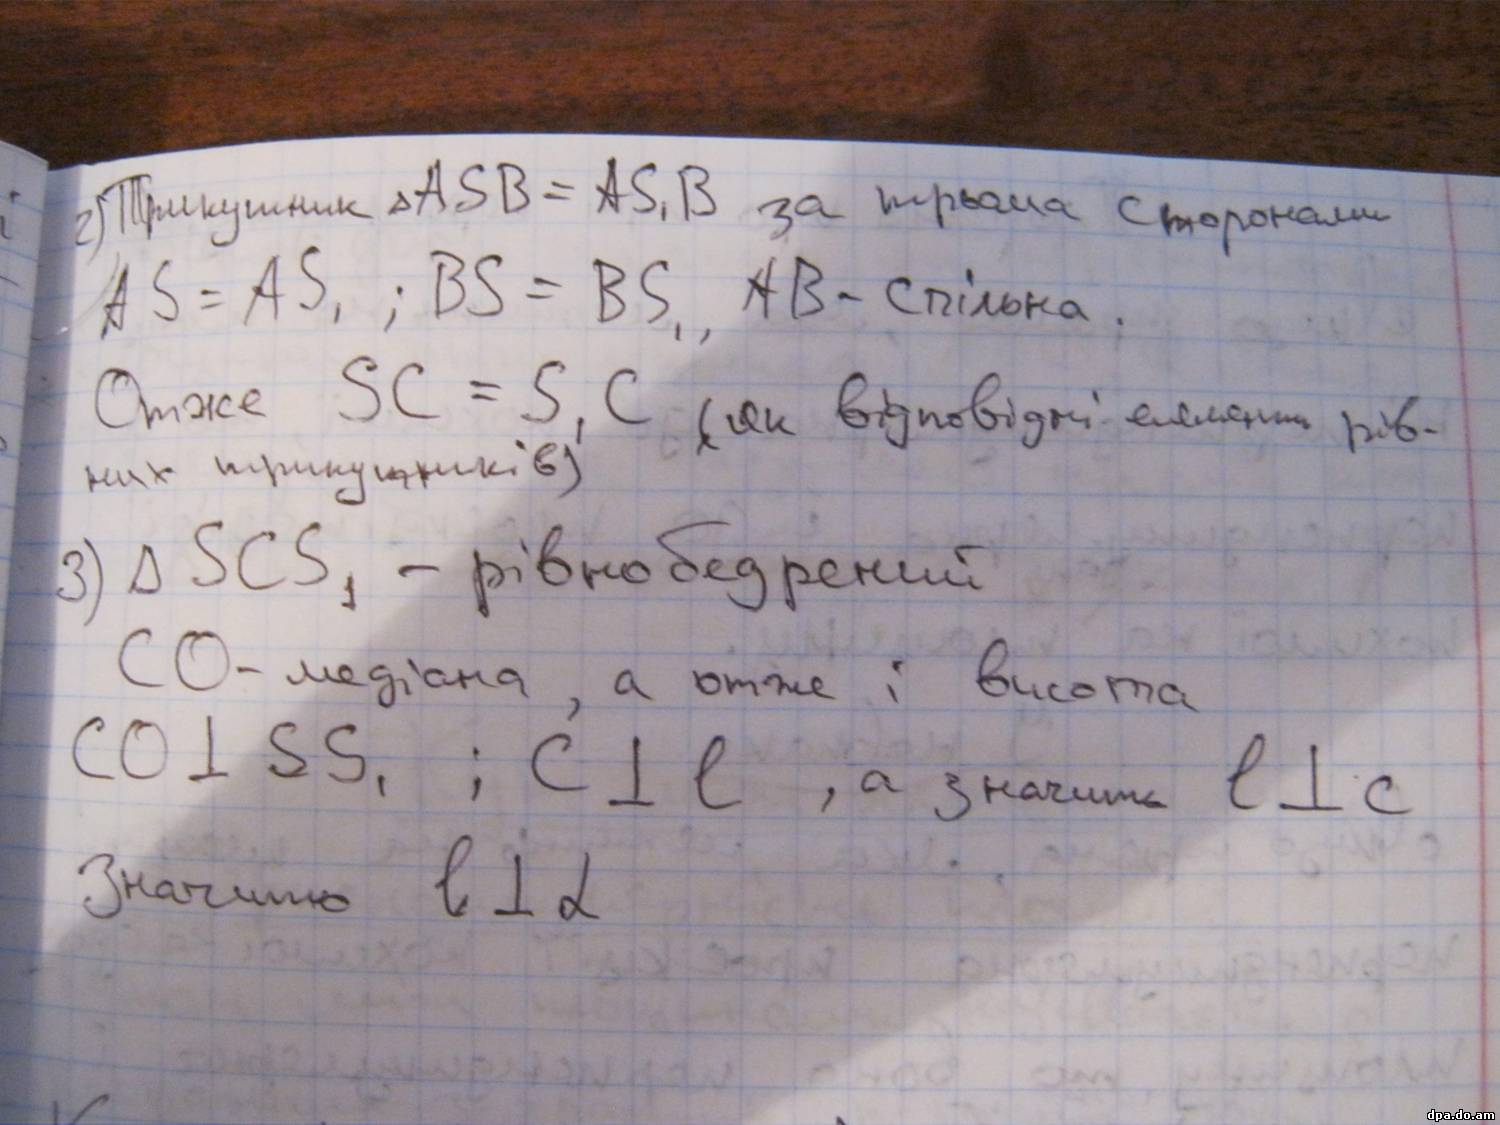 2) Трикутник △ASB = AS₁B за трьома сторонами
AS = AS₁ ; BS = BS₁, AB - спільна.
Отже SC = S₁C (як відповідні елементи рів-
них трикутників)
3) △ SCS₁ - рівнобедрений
CO - медіана, а отже і висота
CO ⊥ SS₁ ; C ⊥ l , а значить l ⊥ c
Значить l ⊥ α
dpa.do.am